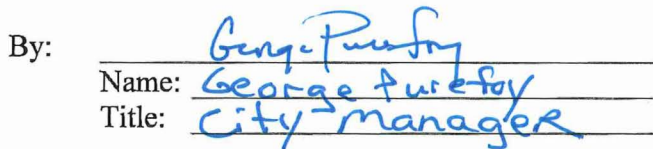 By: George Purefoy
Name: George Purefoy
Title: City Manager